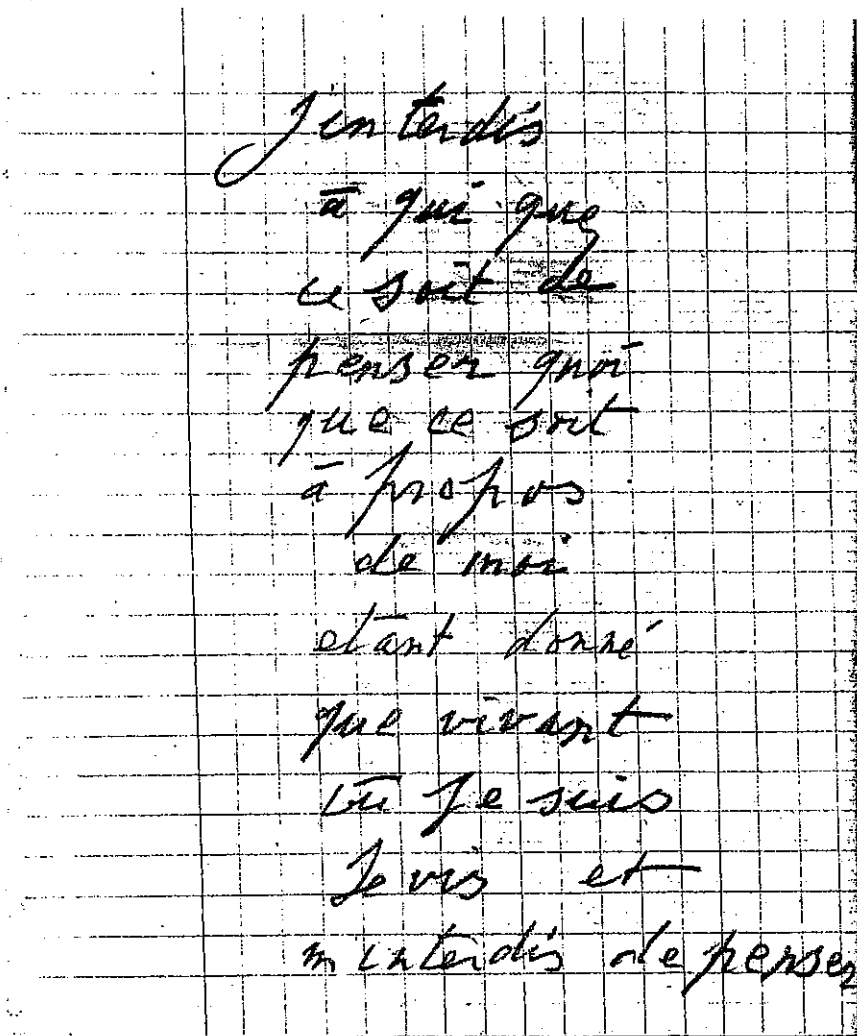 J'interdis
à qui que
ce soit de
penser quoi
que ce soit
à propos
de moi
etant donné
que vivant
où Je suis
Je vis et
m interdis de penser